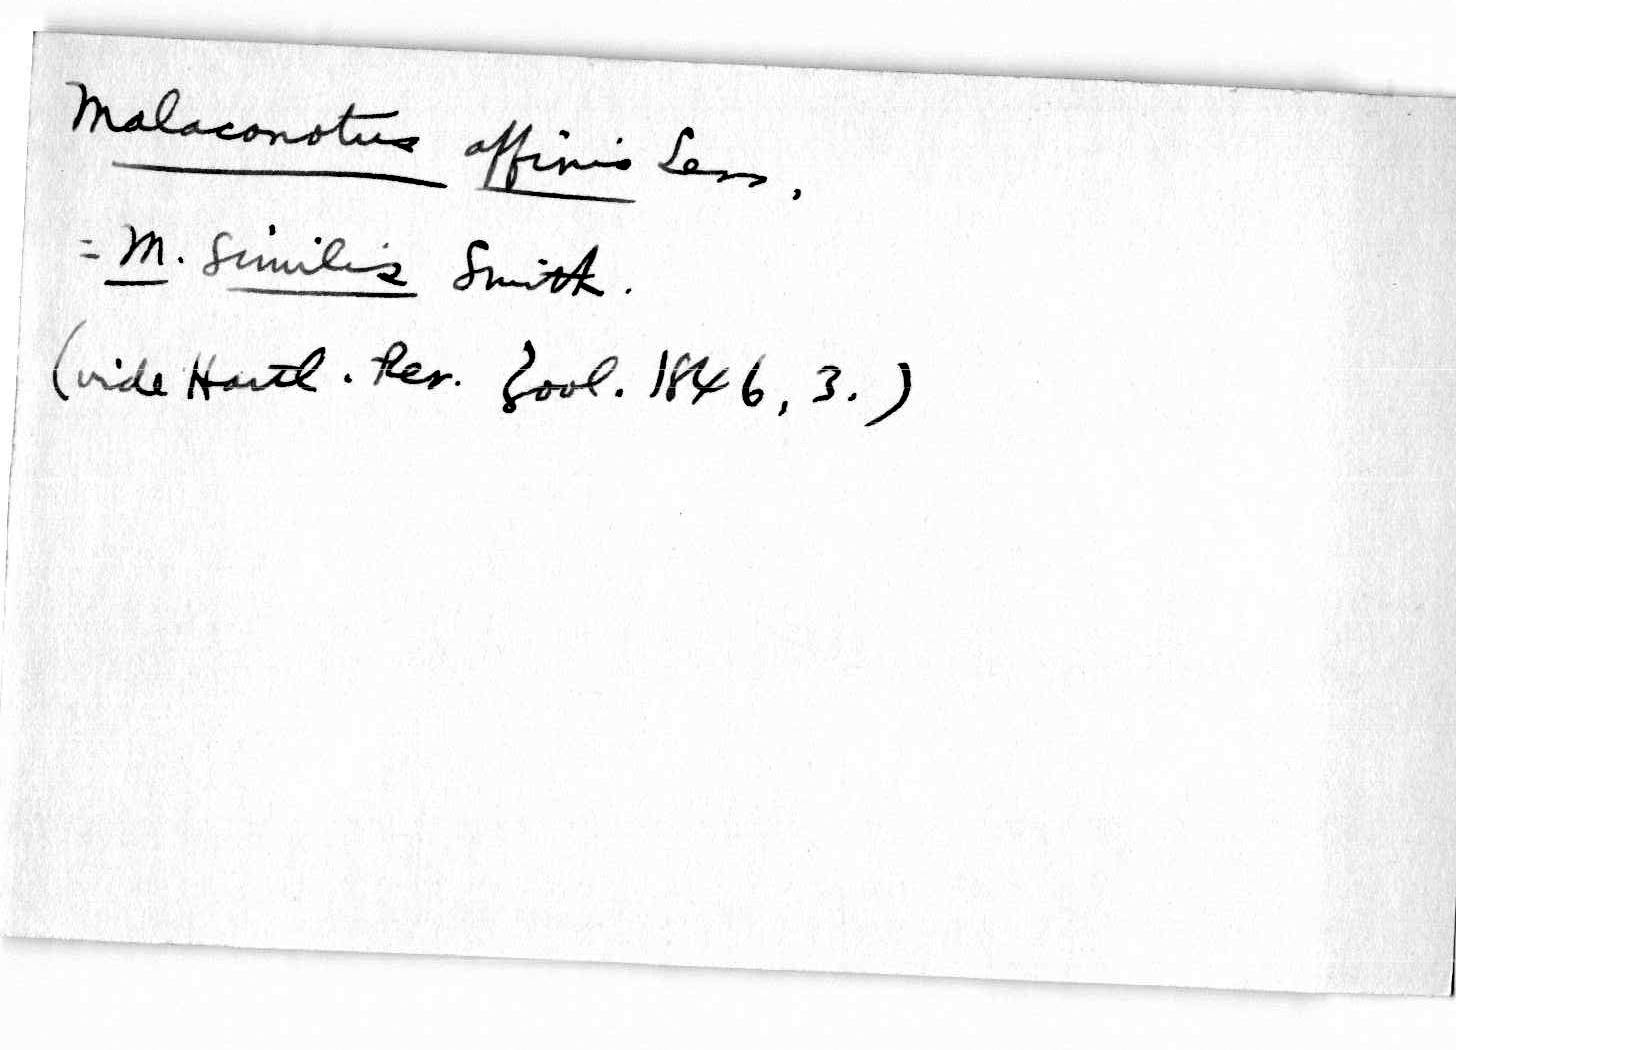 Malaconotus affinis Less,
= M. similis Smith.
(vide Hartl. Rev. Zool. 1846, 3.)